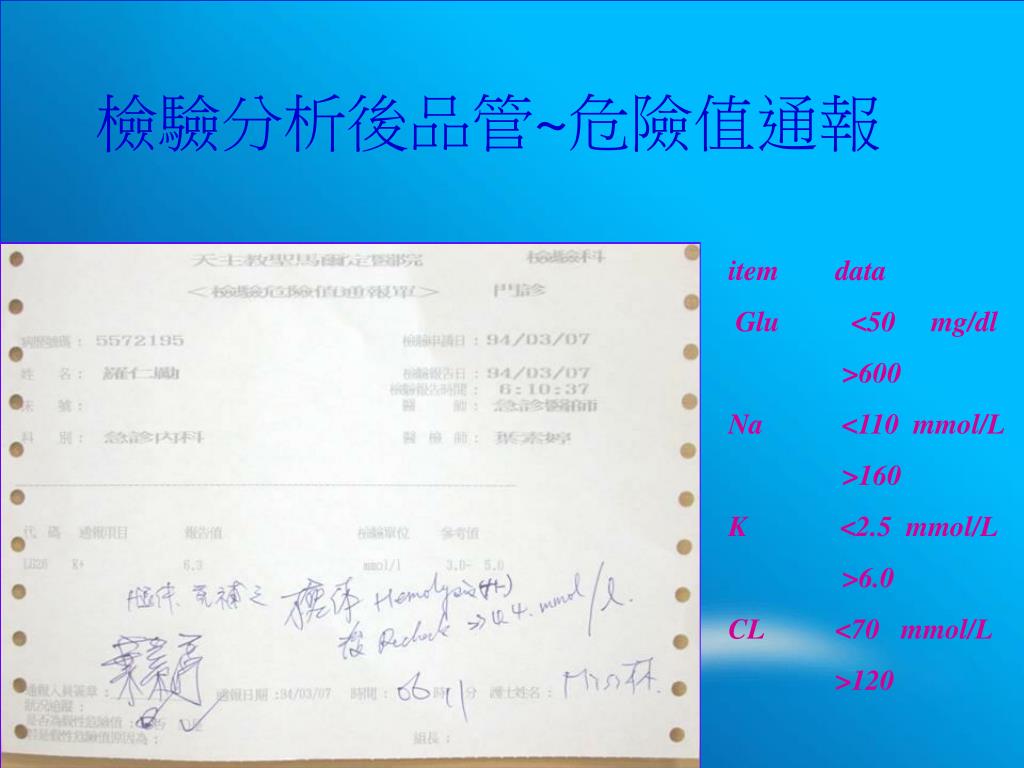 檢驗分析後品管~危險值通報
天主教聖馬爾定醫院 檢驗科
<檢驗危險值通報單> 門診
病歷號碼: 5572195 檢驗申請日: 94/03/07
姓 名: 羅仁勵 檢驗報告日: 94/03/07
檢驗報告時間: 6:10:37
床 號: 醫 師: 急診醫師
科 別: 急診內科 醫 檢 師: 葉素婷
代 碼 通報項目 報告值 檢驗單位 參考值
K+ 6.3 mmol/l 3.0- 5.0
檢体 Hemolysis(++)
後 Recheck 4.4 mmol/l.
通報人員簽章: 通報日期:94/03/07 時間: 06時11分 護士姓名: Miss林.
狀況追蹤:
是否為假性危險值:
若是假性危險值原因為: 組長:
item data
Glu <50 mg/dl
>600
Na <110 mmol/L
>160
K <2.5 mmol/L
>6.0
CL <70 mmol/L
>120